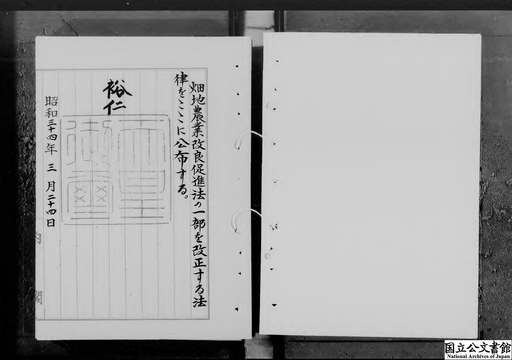 畑地農業改良促進法の一部を改正する法
律をここに公布する。
裕仁
天皇
御璽
昭和三十四年三月二十四日
内閣
国立公文書館
National Archives of Japan